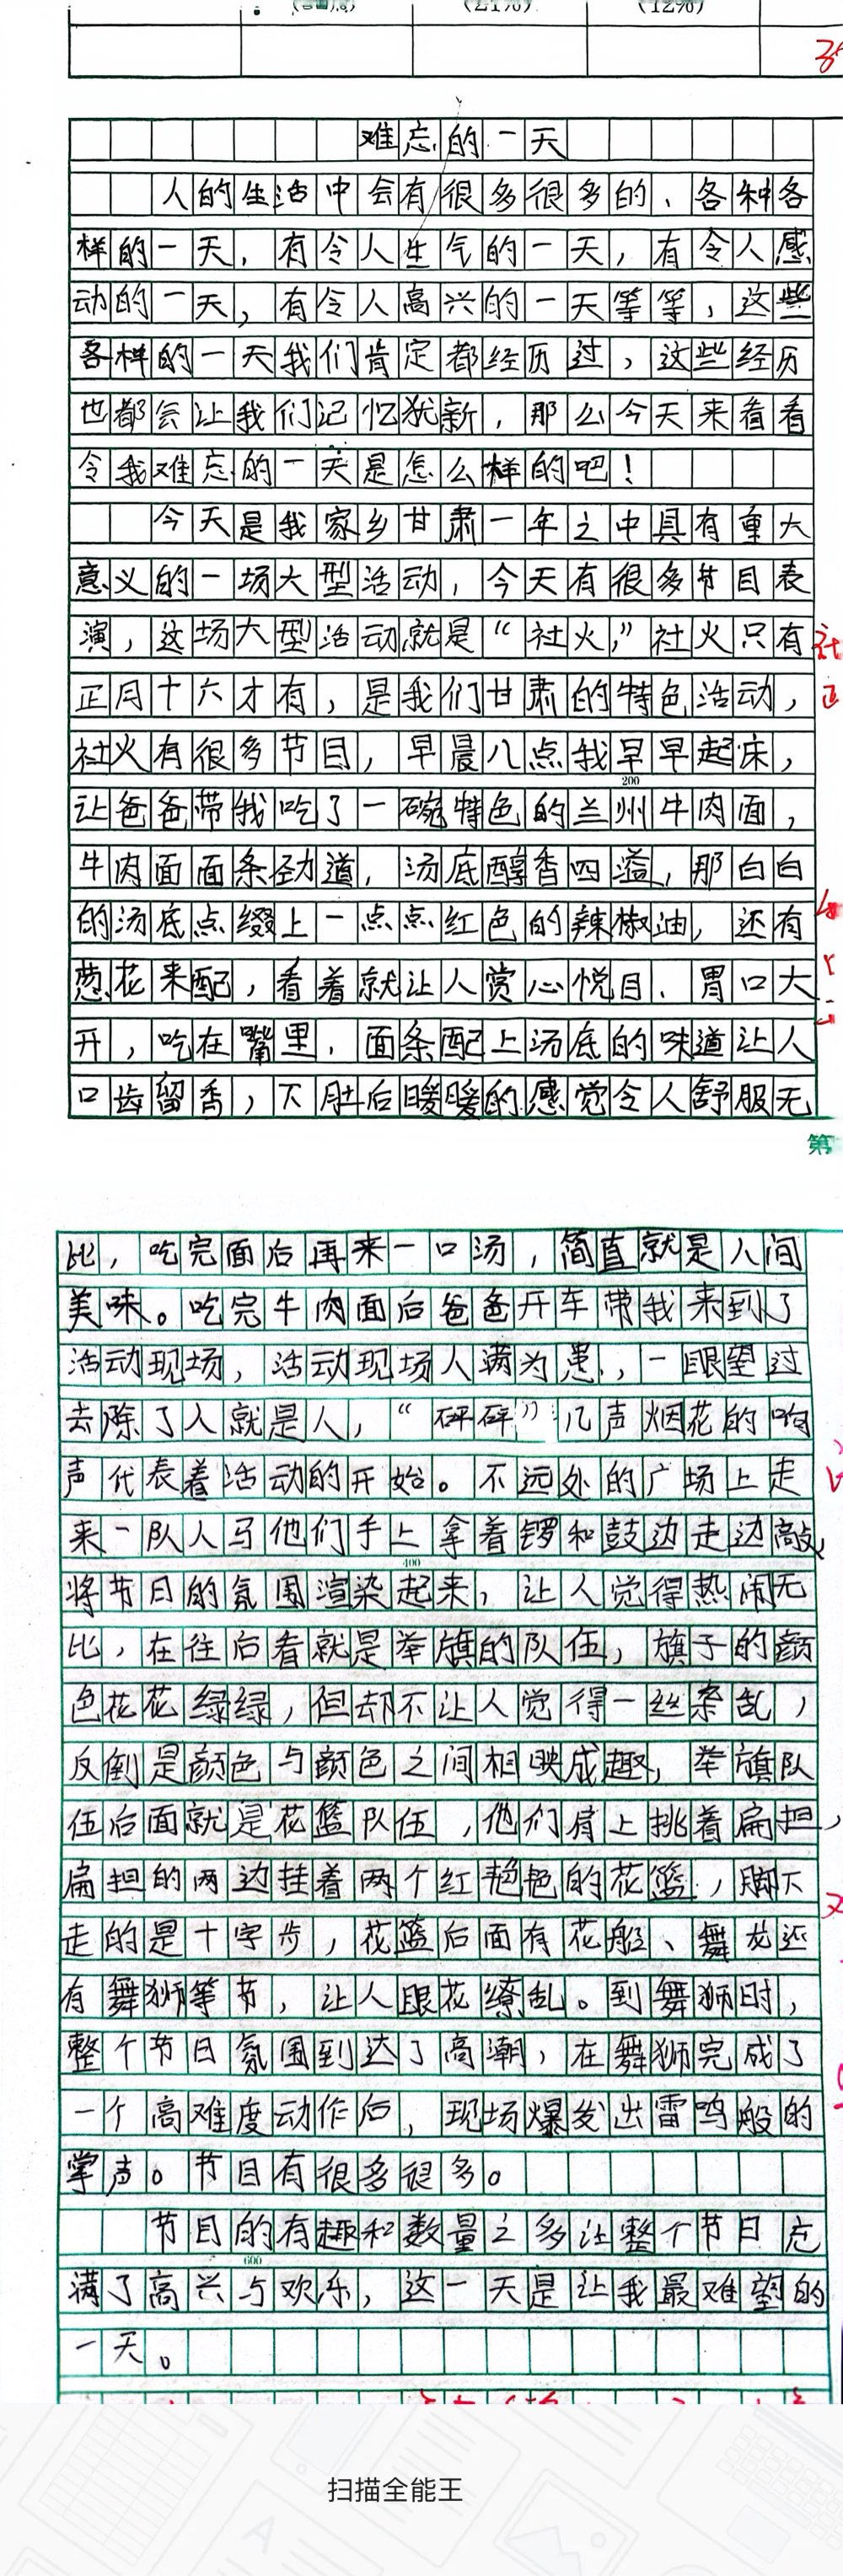 (21%)
(12%)
难忘的一天
人的生活中会有很多很多的、各种各
样的一天，有令人生气的一天，有令人感
动的一天，有令人高兴的一天等等，这些
各样的一天我们肯定都经历过，这些经历
也都会让我们记忆犹新，那么今天来看看
令我难忘的一天是怎么样的吧！
今天是我家乡甘肃一年之中具有重大
意义的一场大型活动，今天有很多节目表
演，这场大型活动就是“社火，”社火只有
正月十六才有，是我们甘肃的特色活动，
社火有很多节目，早晨八点我早早起床，
200
让爸爸带我吃了一碗特色的兰州牛肉面，
牛肉面面条劲道，汤底醇香四溢，那白白
的汤底点缀上一点点红色的辣椒油，还有
葱花来配，看着就让人赏心悦目、胃口大
开，吃在嘴里，面条配上汤底的味道让人
口齿留香，下肚后暖暖的感觉令人舒服无
第
比，吃完面后再来一口汤，简直就是人间
美味。吃完牛肉面后爸爸开车带我来到了
活动现场，活动现场人满为患，一眼望过
去除了人就是人，“砰砰”几声烟花的响
声代表着活动的开始。不远处的广场上走
来一队人马他们手上拿着锣和鼓边走边敲
400
将节日的氛围渲染起来，让人觉得热闹无
比，在往后看就是举旗的队伍，旗子的颜
色花花绿绿，但却不让人觉得一丝杂乱，
反倒是颜色与颜色之间相映成趣，举旗队
伍后面就是花篮队伍，他们肩上挑着扁担，
扁担的两边挂着两个红艳艳的花篮，脚下
走的是十字步，花篮后面有花船、舞龙还
有舞狮等节，让人眼花缭乱。到舞狮时，
整个节日氛围到达了高潮，在舞狮完成了
一个高难度动作后，现场爆发出雷鸣般的
掌声。节目有很多很多。
节目的有趣和数量之多让整个节日充
600
满了高兴与欢乐，这一天是让我最难望的
一天。
扫描全能王